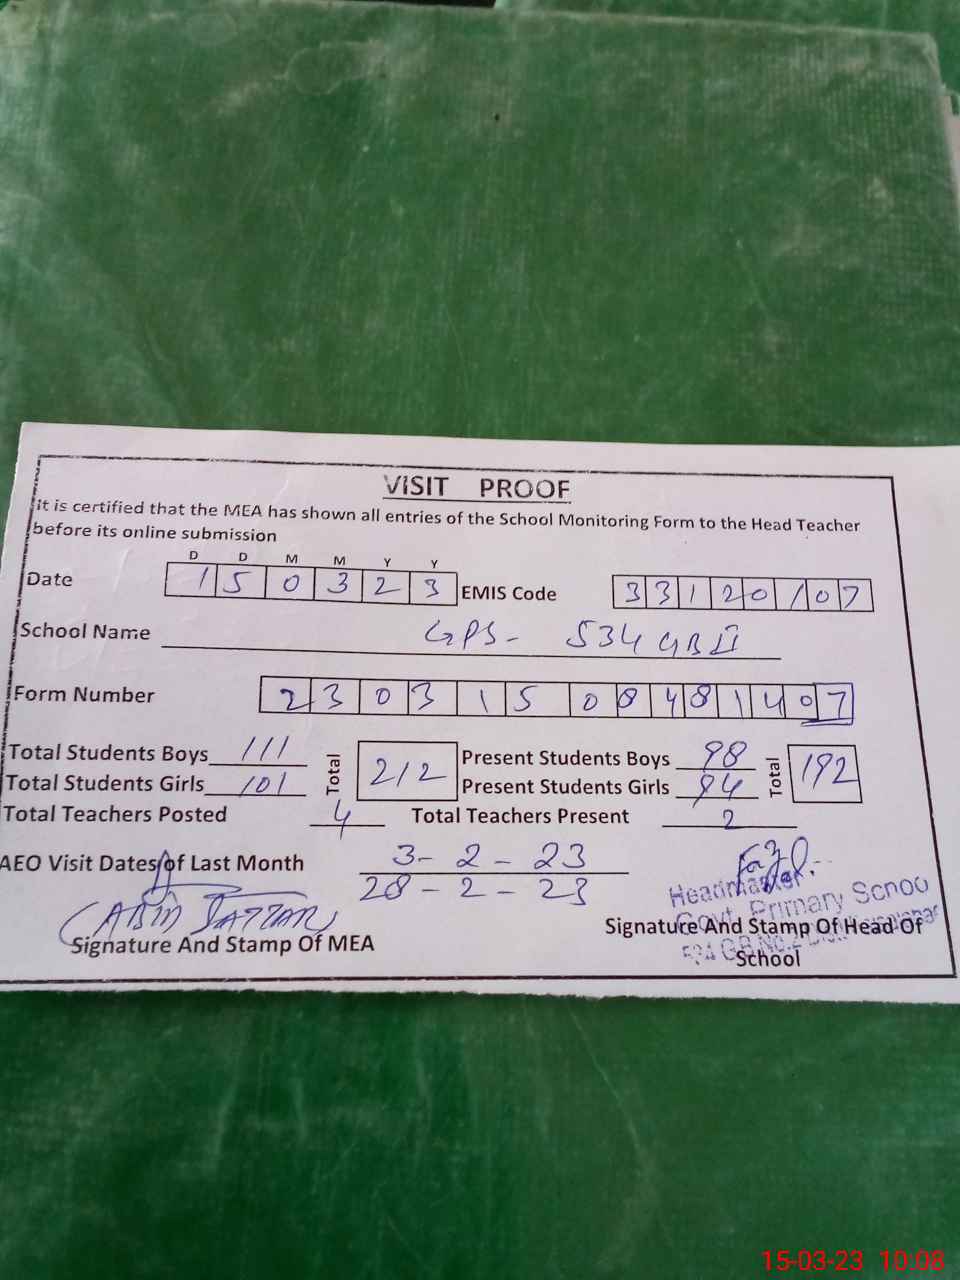 VISIT PROOF
It is certified that the MEA has shown all entries of the School Monitoring Form to the Head Teacher
before its online submission
D D M M Y Y
Date 1 5 0 3 2 3 EMIS Code 3 3 1 2 0 1 0 7
School Name GPS- 534 GB II
Form Number 2 3 0 3 1 5 0 8 4 8 1 4 0 7
Total Students Boys 111 Total 212 Present Students Boys 98 Total 192
Total Students Girls 101 Present Students Girls 94
Total Teachers Posted 4 Total Teachers Present 2
AEO Visit Dates of Last Month 3-2-23
28-2-23
Headmaster
Govt. Primary Schoo
534 G.B No.2
Signature And Stamp Of MEA
Signature And Stamp Of Head Of
School
15-03-23 10:08